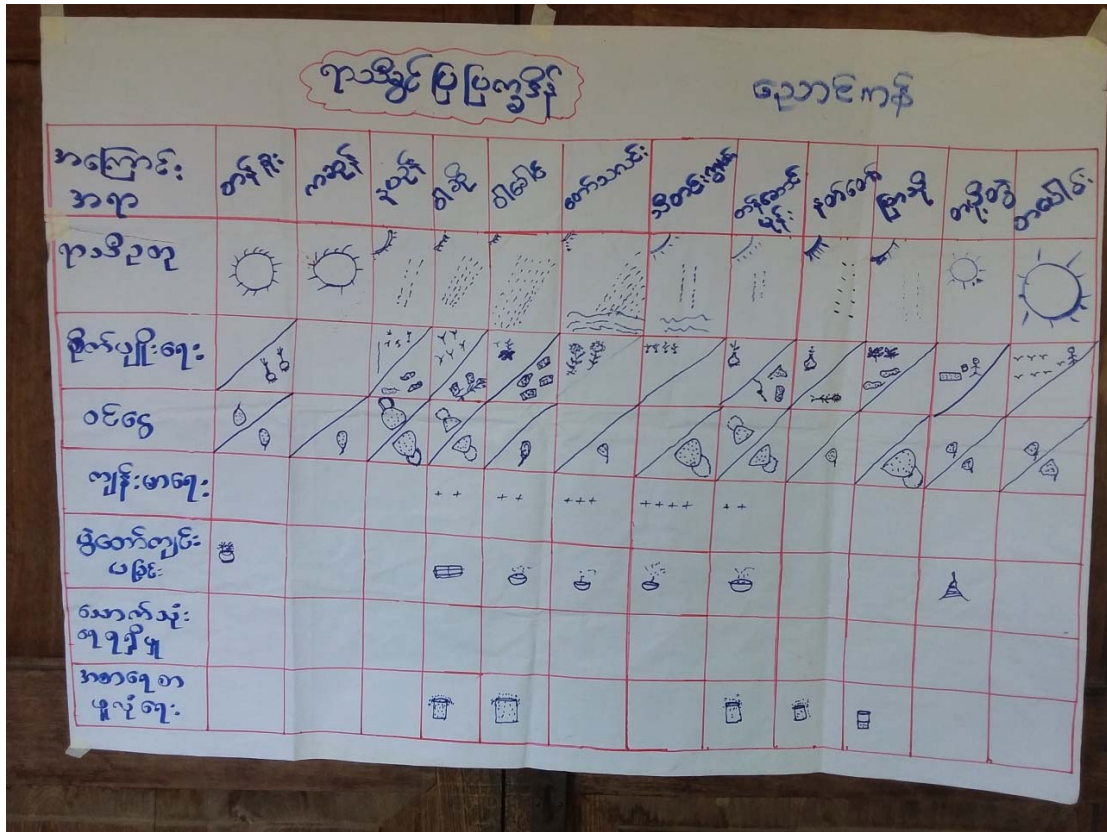 ရာသီခွင် ပြ ပြက္ခဒိန်
ညောင်ကန်
အကြောင်း
အရာ
တန်ခူး
ကဆုန်
နယုန်
ဝါဆို
ဝါခေါင်
တော်သလင်း
သီတင်းကျွတ်
တန်ဆောင်
မုန်း
နတ်တော်
ပြာသို
တပို့တွဲ
တပေါင်း
ရာသီဥတု
စိုက်ပျိုးရေး
ဝင်ငွေ
ကျန်းမာရေး
ပွဲတော်ကျင်း
ပခြင်း
သောက်သုံး
ရေရရှိမှု
အစာရေစာ
ဖူလုံရေး